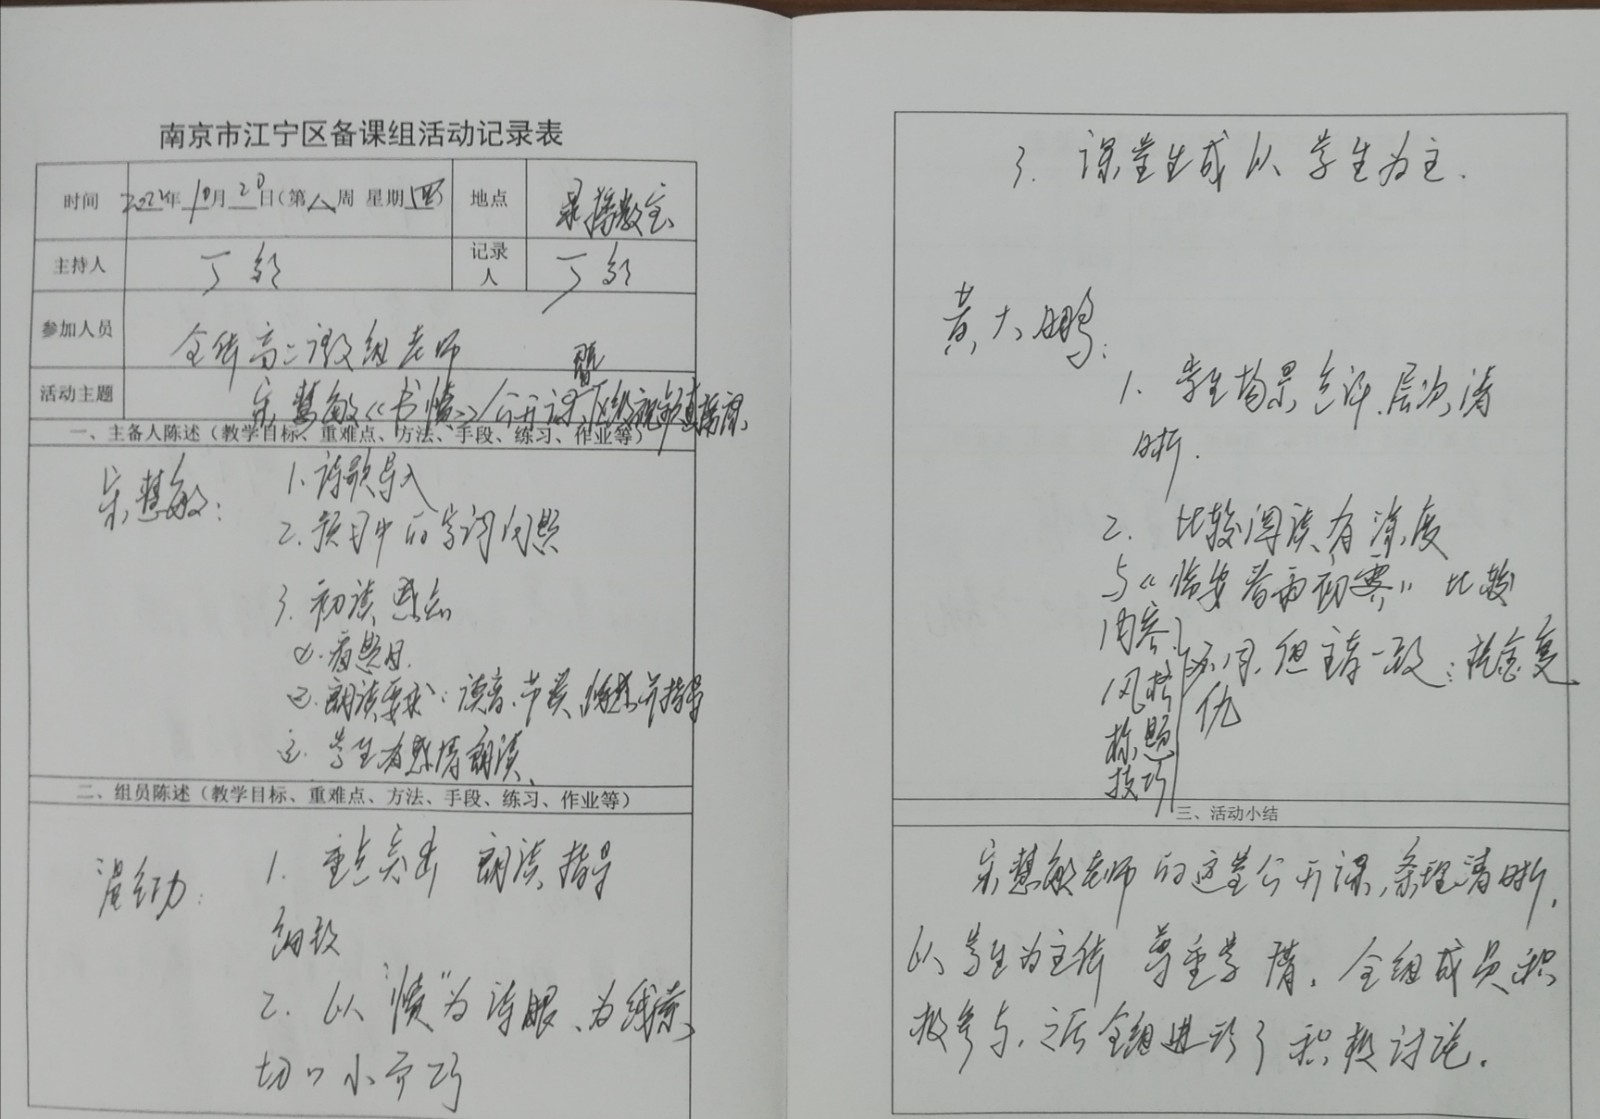 南京市江宁区备课组活动记录表
时间 2022年10月20日(第八周 星期四) 地点 录播教室
主持人 丁 记录人 丁
参加人员 全体高二语文组老师
活动主题 宋慧敏《书愤》公开课暨区级视频直播课
一、主备人陈述(教学目标、重难点、方法、手段、练习、作业等)
宋慧敏: 1.诗歌导入
2.预习中的字词问题
3.初读感知
①.看题目.
②.朗读要求:读音、节奏、情感并指导
③.学生有感情朗读、
二、组员陈述(教学目标、重难点、方法、手段、练习、作业等)
1. 重点突出 朗读指导
细致
2. 以"愤"为诗眼、为线索、
切口小而巧
3. 课堂生成以学生为主.
黄大鹏:
1. 学生 层次清
晰.
2. 比较阅读有深度
与《临安春雨初霁》比较
内容、
风格
标题
技巧
不同,但主旨一致:抗金复
仇
三、活动小结
宋慧敏老师的这堂公开课,条理清晰,
以学生为主体 尊重学情,全组成员积
极参与,之后全组进行了积极讨论.